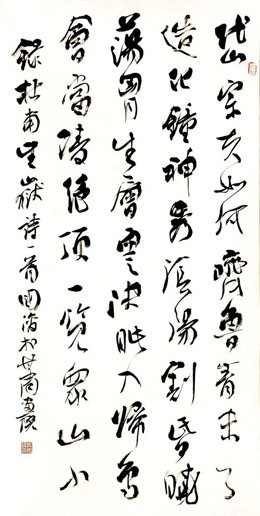 岱宗夫如何齊魯青未了
造化鍾神秀陰陽割昏曉
蕩胷生層雲決眥入歸鳥
會當凌絕頂一覽衆山小
錄杜甫望嶽詩一首